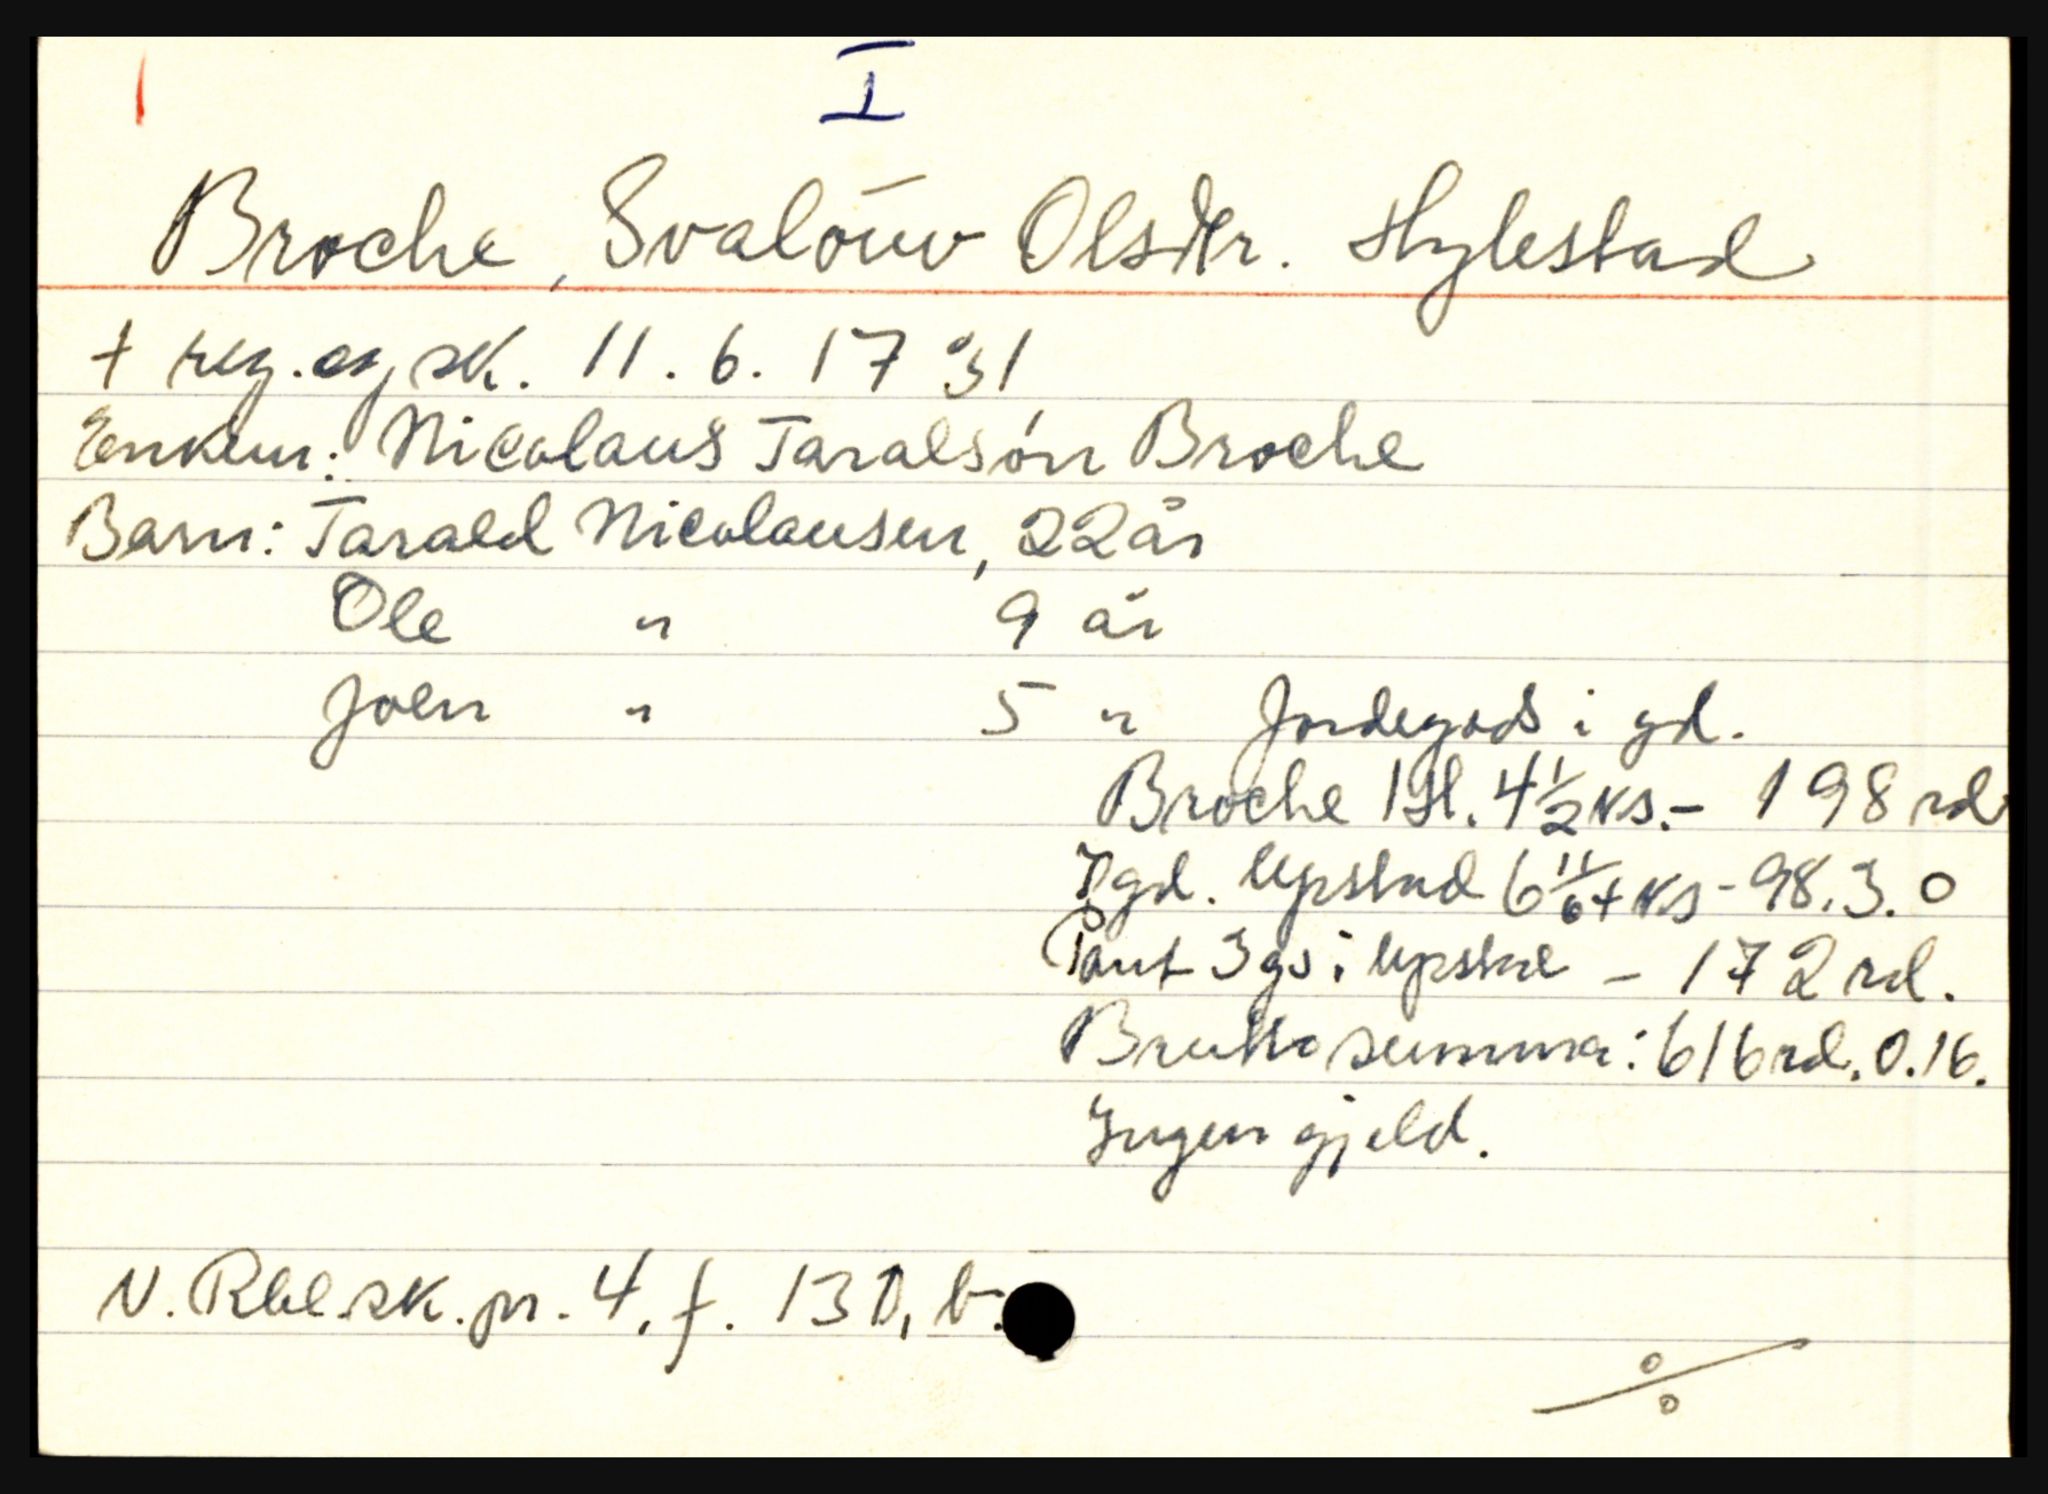 I
Broche, Svalōuv Olsdtr. Hylestad
+ reg. og sk. 11. 6. 1731
Enkem: Nicolaus Taralsón Broche
Barn: Tarald Nicolausen, 22 år
Ole " 9 år
Joen " 5 " Jordegods i gd.
Broche 1 hl. 4 1/2 ks. - 198 rd
I gd. Upstad 6 11/64 ks - 98. 3. 0
Pant 3 gs i Upstad - 172 rd.
Brutto summa: 616 rd. 0. 16.
Ingen gjeld.
N. Rbl. sk. pr. 4, f. 130, b.